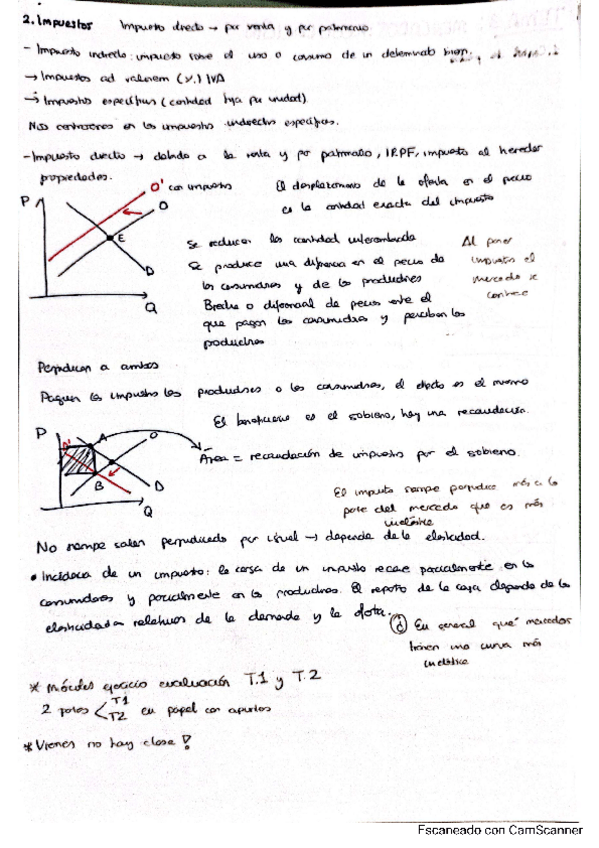 2. Impuestos Impuesto directo → por renta y por patrimonio.
- Impuesto indirecto: impuesto sobre el uso o consumo de un determinado bien.
→ Impuestos ad valorem (%) IVA
→ Impuestos específicos (cantidad fija por unidad)
Nos centraremos en los impuestos indirectos específicos.
- Impuesto directo → debido a la renta y por patrimonio, IRPF, impuesto al heredar
propiedades.
P
O' con impuestos
O
E
D
Q
El desplazamiento de la oferta en el precio
es la cantidad exacta del impuesto
Se reducen las cantidad intercambiada
Se produce una diferencia en el precio de
los consumidores y de los productores
Brecha o diferencial de precios entre el
que pagan los consumidores y perciben los
productores
Al poner
impuestos el
mercado se
contrae
Perjudican a ambos
Paguen los impuestos los productores o los consumidores, el efecto es el mismo
El beneficiario es el gobierno, hay una recaudación.
P
D'
A
O
B
D
Q
Área = recaudación de impuestos por el gobierno.
El impuesto siempre perjudica más a la
parte del mercado que es más
inelástica
No siempre salen perjudicados por igual → depende de la elasticidad.
• Incidencia de un impuesto: la carga de un impuesto recae parcialmente en los
consumidores y parcialmente en los productores. El reparto de la carga depende de las
elasticidades relativas de la demanda y la oferta.
¿ En general qué mercados
tienen una curva más
inelástica
* Miércoles ejercicio evaluación T.1 y T.2
2 partes < T1
T2 en papel con apuntes
* Viernes no hay clase !
Escaneado con CamScanner